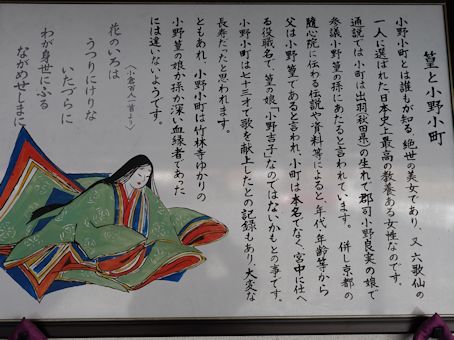 篁と小野小町
小野小町とは誰もが知る、絶世の美女であり、又六歌仙の
一人に選ばれた日本史上最高の教養ある女性なのです。
通説では小町は出羽(秋田県)の生れで郡司小野良実の娘で
参議小野篁の孫にあたると言われています。併し京都の
随心院に伝わる伝説や資料等によると、年代、年齢等から
父は小野篁であると言われ、小町は本名でなく、宮中に仕へ
る役職名で、篁の娘「小野吉子」なのではないかもとの事です。
小野小町は七十三才で歌を献上したとの記録もあり、大変な
長寿だったと思われます。
ともあれ、小野小町は竹林寺ゆかりの
小野篁の娘か孫か深い血縁者であった
には違いないようです。
〈小倉百人一首より〉
花のいろは
うつりにけりな
いたづらに
わが身世にふる
ながめせしまに